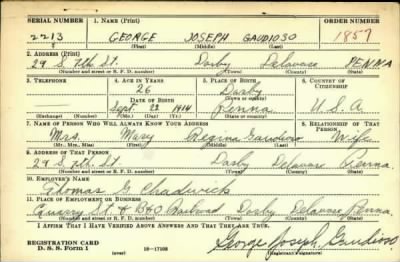 SERIAL NUMBER 1. NAME (Print) ORDER NUMBER
2213 GEORGE JOSEPH GAUDIOSO 1857
(First) (Middle) (Last)
2. ADDRESS (Print)
29 S. 7th St. Darby Delaware PENNA
(Number and street or R. F. D. number) (Town) (County) (State)
3. TELEPHONE 4. AGE IN YEARS 5. PLACE OF BIRTH 6. COUNTRY OF CITIZENSHIP
26 Darby
DATE OF BIRTH (Town or county)
Sept 22 1914 Penna U.S.A
(Exchange) (Number) (Mo.) (Day) (Yr.) (State or country)
7. NAME OF PERSON WHO WILL ALWAYS KNOW YOUR ADDRESS 8. RELATIONSHIP OF THAT PERSON
Mrs. Mary Regina Gaudioso Wife
(Mr., Mrs., Miss) (First) (Middle) (Last)
9. ADDRESS OF THAT PERSON
29 S. 7th St Darby Delaware Penna
(Number and street or R. F. D. number) (Town) (County) (State)
10. EMPLOYER'S NAME
Thomas G Chadwick
11. PLACE OF EMPLOYMENT OR BUSINESS
St & B&O Railroad Darby Delaware Penna
(Number and street or R. F. D. number) (Town) (County) (State)
I AFFIRM THAT I HAVE VERIFIED ABOVE ANSWERS AND THAT THEY ARE TRUE.
REGISTRATION CARD
D. S. S. Form 1 16—17105 George Joseph Gaudioso
(Registrant's signature)